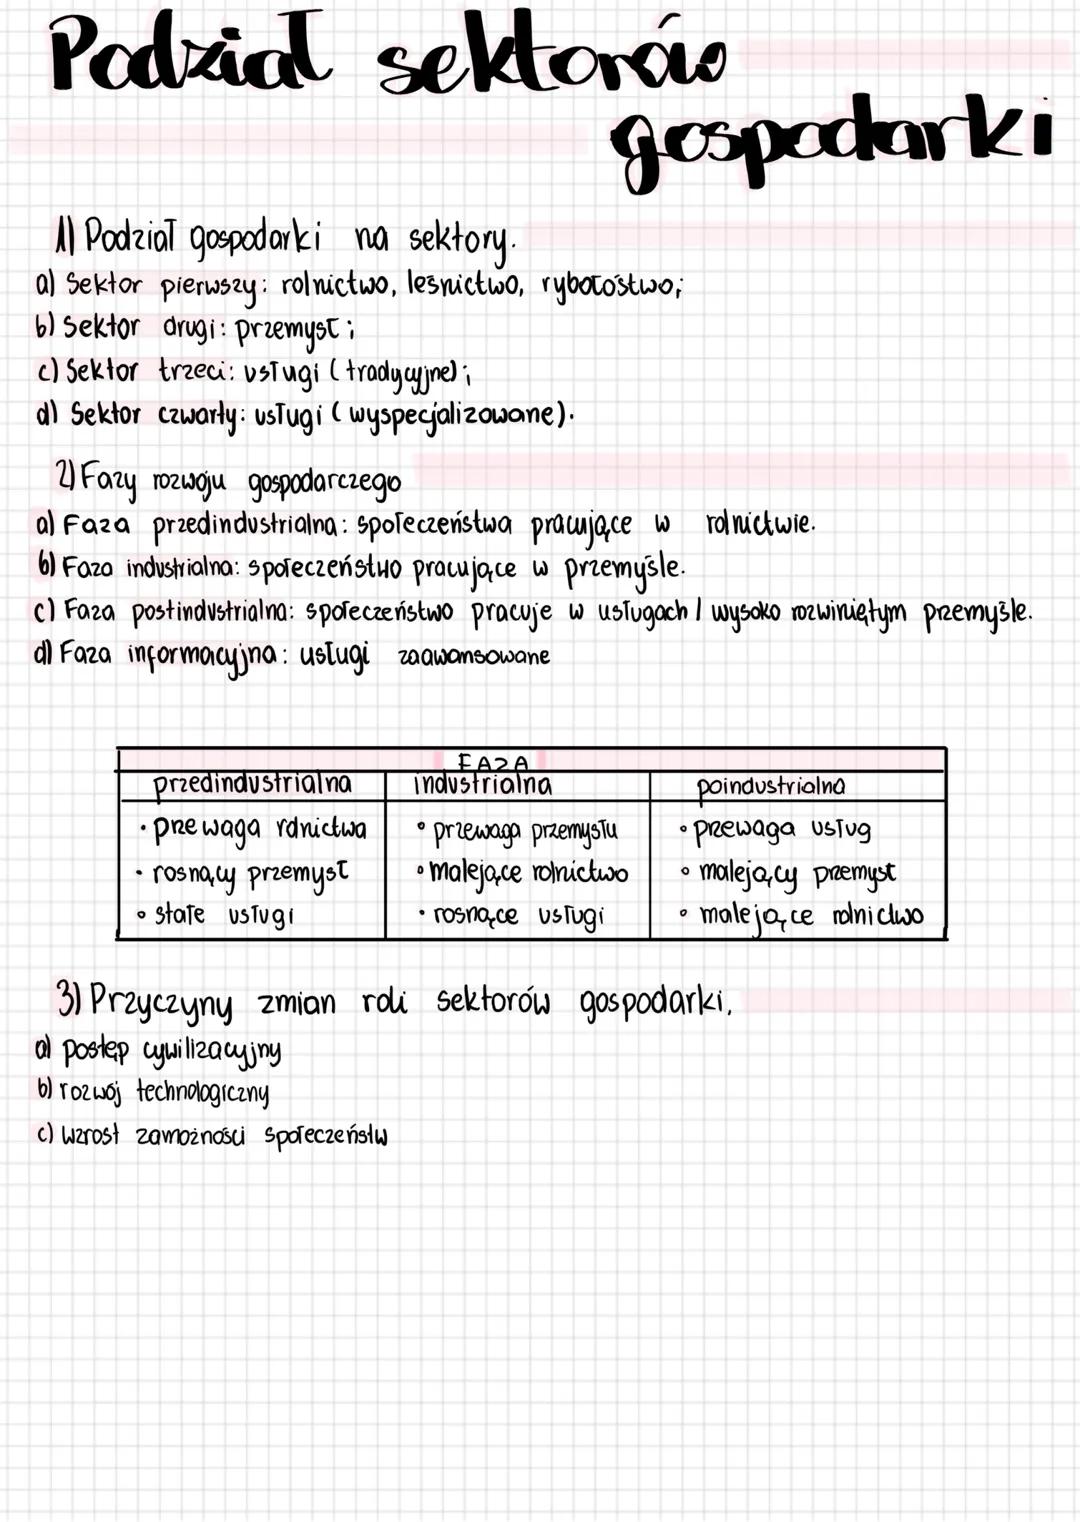 Podział sektorów
gospodarki
1) Podział gospodarki na sektory.
a) Sektor pierwszy: rolnictwo, leśnictwo, rybołóstwo;
b) Sektor drugi: przemysł;
c) Sektor trzeci: usługi (tradycyjne);
d) Sektor czwarty: usługi (wyspecjalizowane).
2) Fazy rozwoju gospodarczego
a) Faza przedindustrialna: społeczeństwa pracujące w rolnictwie.
b) Faza industrialna: społeczeństwo pracujące w przemyśle.
c) Faza postindustrialna: społeczeństwo pracuje w usługach / wysoko rozwiniętym przemyśle.
d) Faza informacyjna: usługi zaawansowane
FAZA
przedindustrialna industrialna poindustrialna
• przewaga rolnictwa • przewaga przemysłu • przewaga usług
• rosnący przemysł • malejące rolnictwo • malejący przemysł
• stałe usługi • rosnące usługi • malejące rolnictwo
3) Przyczyny zmian roli sektorów gospodarki.
a) postęp cywilizacyjny
b) rozwój technologiczny
c) wzrost zamożności społeczeństw